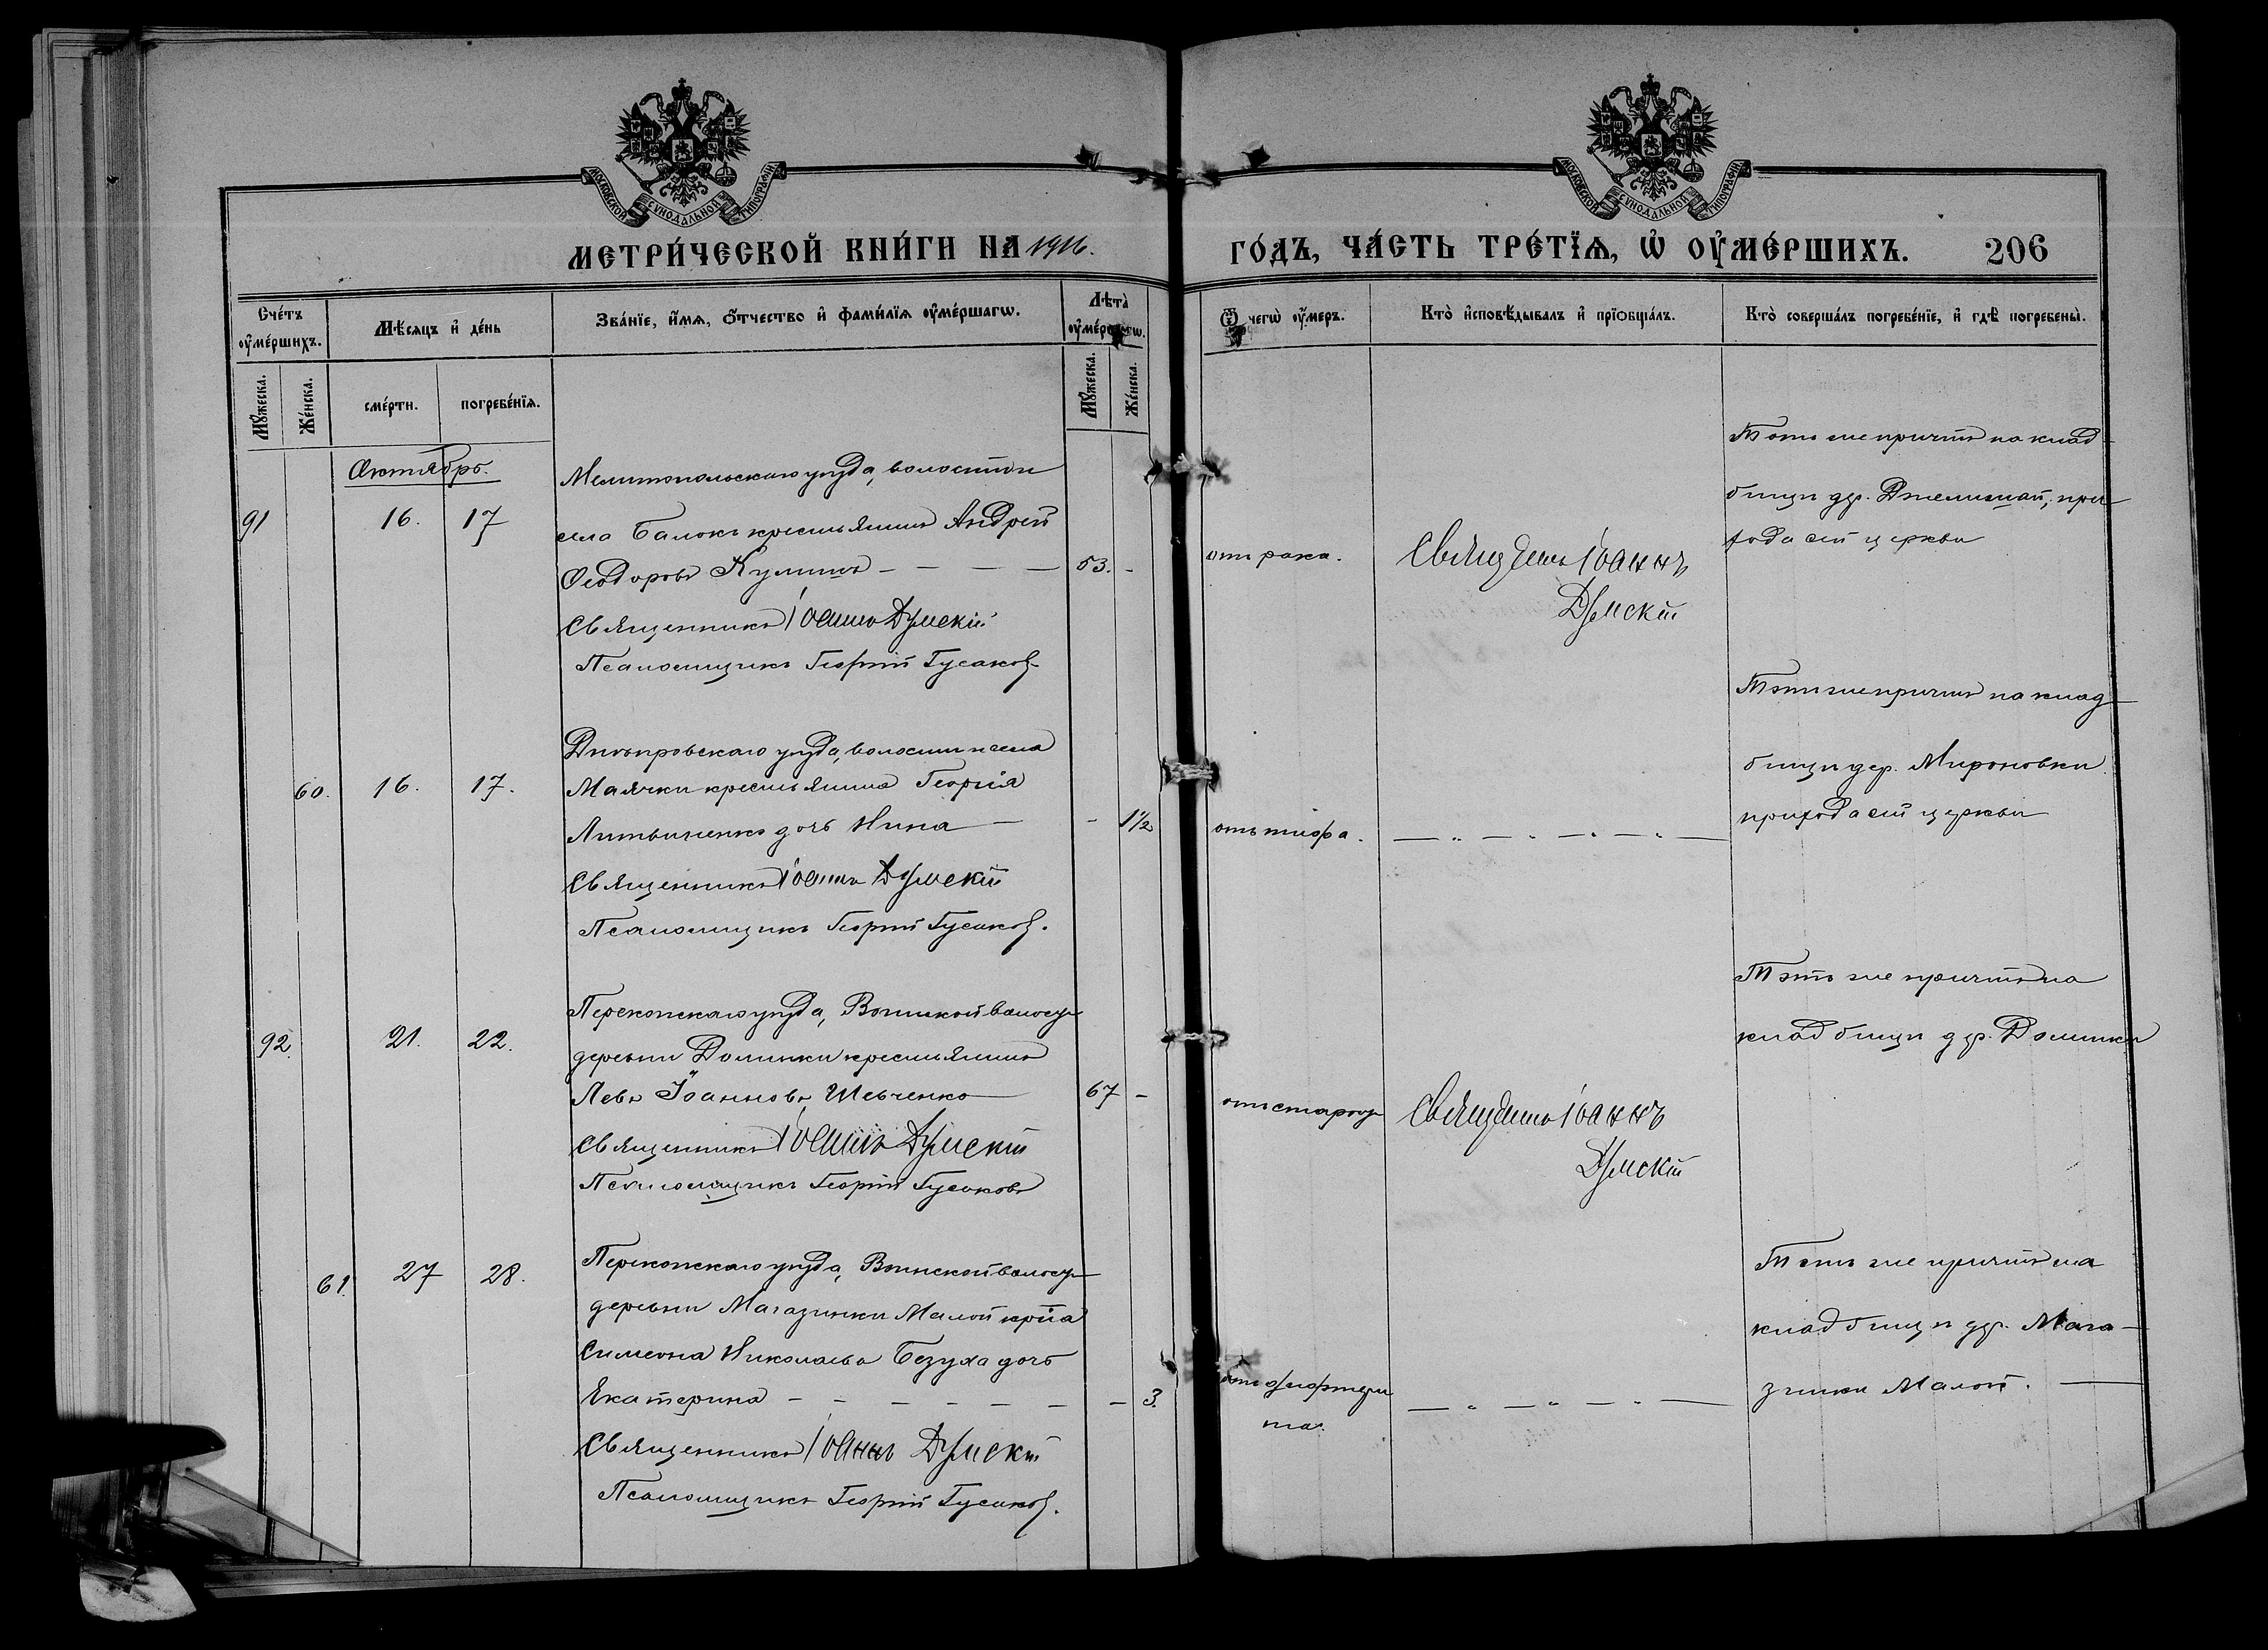 МОСКОВСКОЙ СУНОДАЛЬНОЙ ТИПОГРАФІИ
МОСКОВСКОЙ СУНОДАЛЬНОЙ ТИПОГРАФІИ
МЕТРИ́ЧЕСКОЙ КНИ́ГИ НА 1916.
ГО́ДЪ, ЧА́СТЬ ТРЕ́ТЇѦ, Ѡ҆ ОУ҆МЕ́РШИХЪ. 206
Сче́тъ оу҆ме́ршихъ.
Мѣ́сяцъ и҆ де́нь
Зва́нїе, и҆́мѧ, о҆́тчество и҆ фами́лїѧ оу҆ме́ршагѡ.
Лѣта̀ оу҆ме́ршагѡ.
Ѿ чегѡ̀ оу҆́меръ.
Кто̀ и҆сповѣ́дывалъ и҆ прїобща́лъ.
Кто̀ соверша́лъ погребе́нїе, и҆ гдѣ̀ погребены̀.
Мꙋ́жеска.
Же́нска.
сме́рти.
погребе́нїѧ.
Мꙋ́жеска.
Же́нска.
Октябрь.
91
16.
17
Мелитопольскаго уѣзда, волости и
села Балокъ крестьянинъ Андрей
Ѳеодоровъ Кулишъ – – – –
53. -
Священникъ Іоаннъ Думскій
Псаломщикъ Георгій Гусаковъ
отъ рака.
Священ. Іоаннъ
Думскій
Тотъ же причтъ на клад-
бищѣ дер. , при-
хода сей церкви
60.
16.
17.
Днѣпровскаго уѣзда, волости и села
Маячки крестьянина Георгія
Литвиненко дочь Нина —
- 1½
Священникъ Іоаннъ Думскій
Псаломщикъ Георгій Гусаковъ.
отъ тифа.
— „ — „ — „ — „ —
Тотъ же причтъ на клад-
бищѣ дер. Мироновки
прихода сей церкви
92.
21.
22.
Перекопскаго уѣзда, Воинской волости
деревни Долинки крестьянинъ
Левъ Іоанновъ Шевченко —
67 -
Священникъ Іоаннъ Думскій
Псаломщикъ Георгій Гусаковъ
отъ старости
Священ. Іоаннъ
Думскій
Тотъ же причтъ на
кладбищѣ дер. Долинки
61.
27
28.
Перекопскаго уѣзда, Воинской волости
деревни Магазинки Малой кр-на
Симеона Николаева Безуха дочь
Екатерина – – – – – –
– 3.
Священникъ Іоаннъ Думскій
Псаломщикъ Георгій Гусаковъ.
отъ дифтери-
та.
— „ — „ — „ —
Тотъ же причтъ на
кладбищѣ дер. Мага-
зинки Малой. —